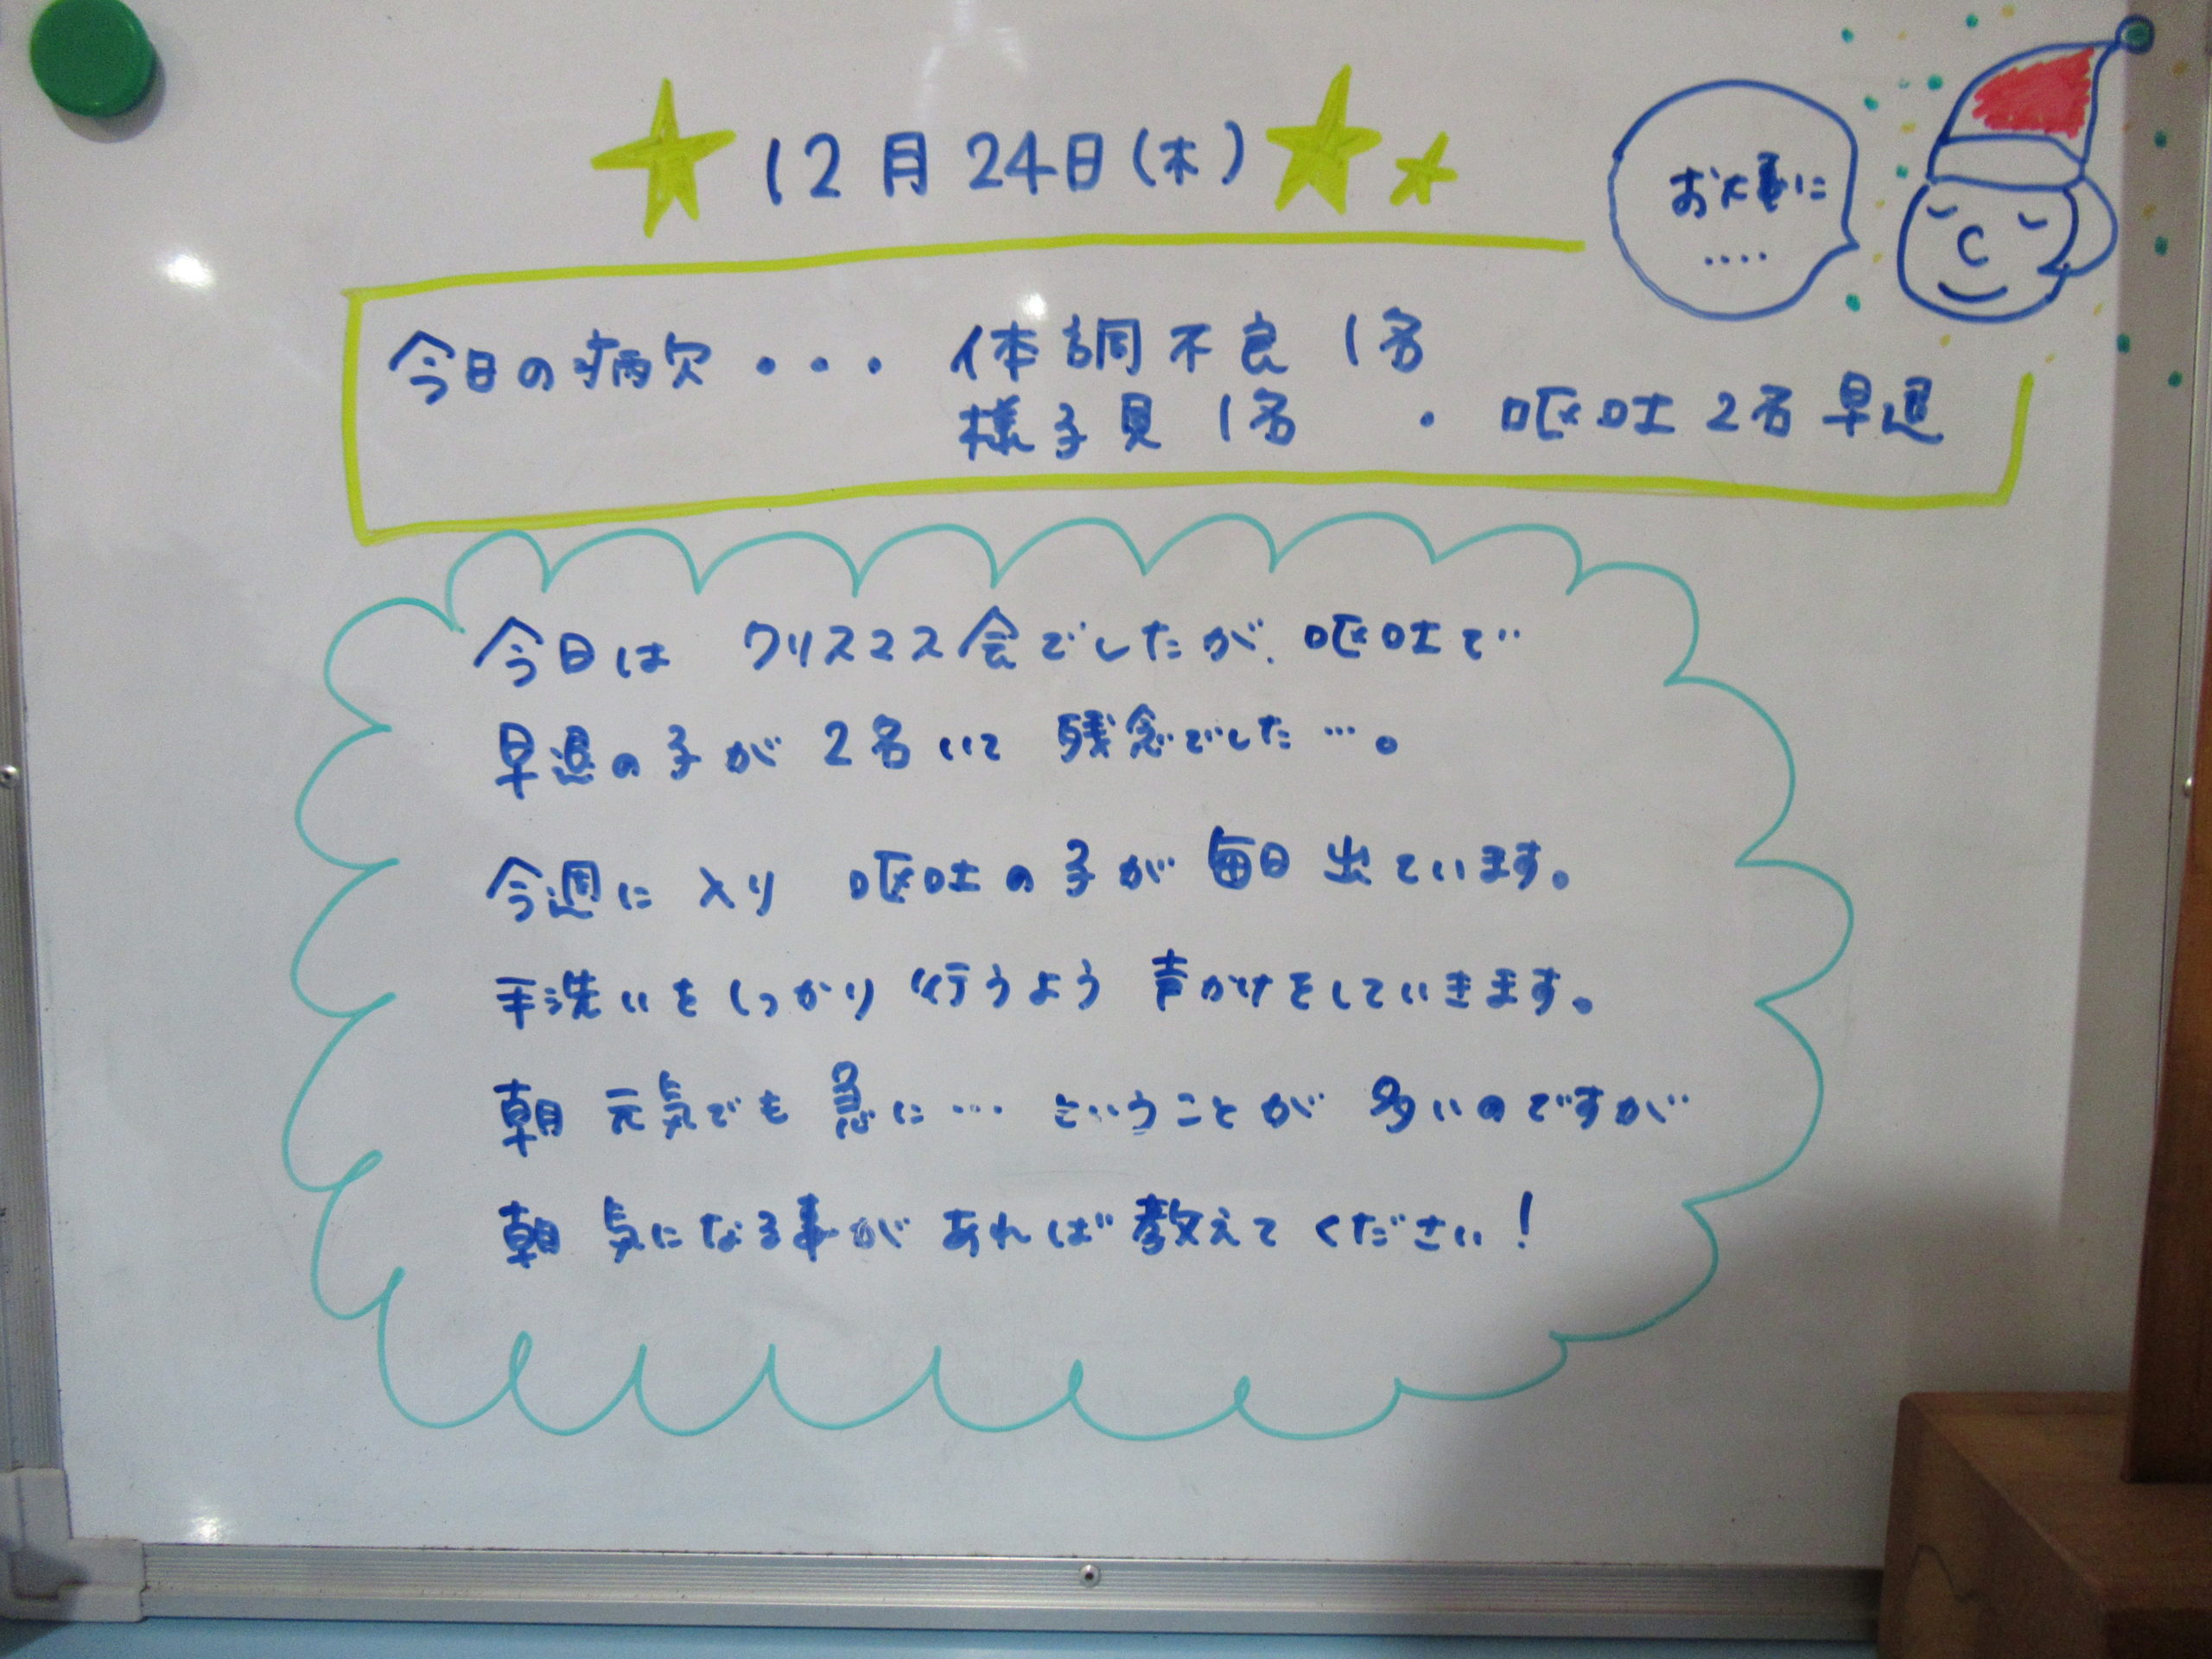 12月24日(木)
お大事に
‥‥
今日の病欠・・・ 体調不良 1名
様子見 1名 ・ 嘔吐 2名 早退
今日は クリスマス会でしたが、嘔吐で
早退の子が 2名いて 残念でした…。
今週に入り 嘔吐の子が 毎日 出ています。
手洗いをしっかり 行うよう 声かけをしていきます。
朝 元気でも 急に… ということが 多いのですが
朝 気になる事が あれば 教えて ください!